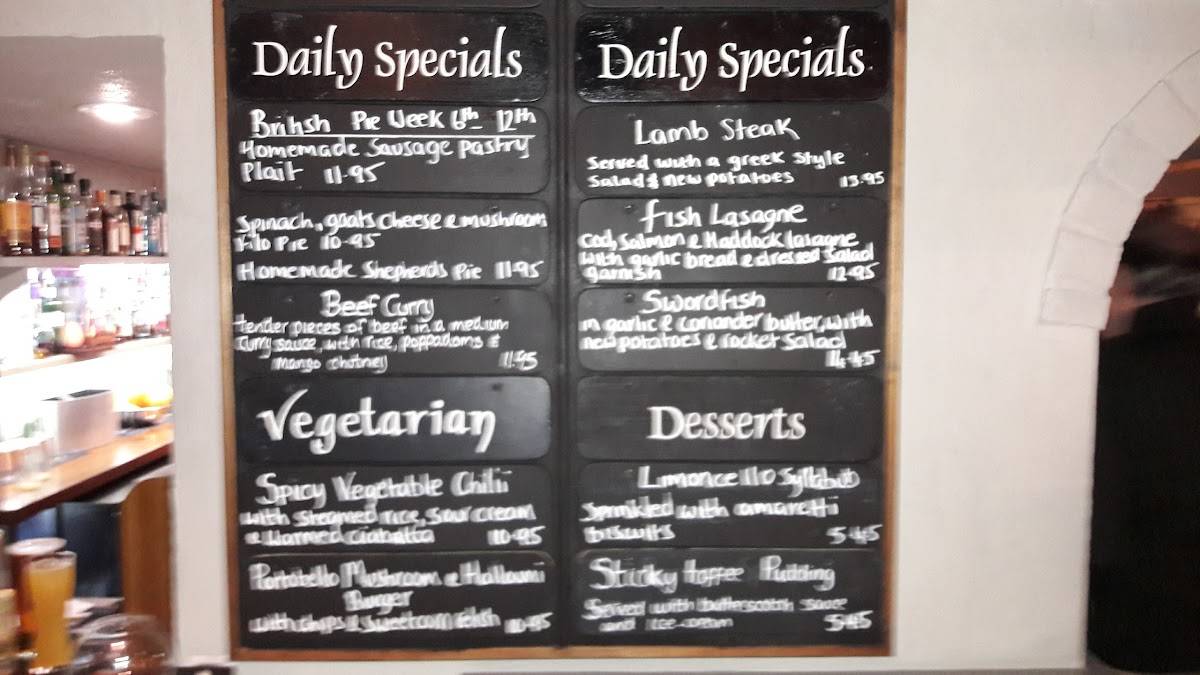 Daily Specials
British Pie Week 6th - 12th
Homemade Sausage pastry
Plait 11.95
Spinach, goats cheese & mushroom
Filo Pie 10.95
Homemade Shepherds Pie 11.95
Beef Curry
Tender pieces of beef in a medium
Curry sauce, with rice, poppadoms &
mango chutney 11.95
Vegetarian
Spicy Vegetable Chilli
with steamed rice, sour cream
& warmed ciabatta 10.95
Portobello Mushroom & Halloumi
Burger
with chips & sweetcorn relish 10.95
Daily Specials
Lamb Steak
Served with a greek style
Salad & new potatoes 13.95
Fish Lasagne
cod, Salmon & Haddock lasagne
with garlic bread & dressed salad
garnish 12.95
Swordfish
in garlic & coriander butter, with
new potatoes & rocket Salad
14.45
Desserts
Limoncello Syllabub
Sprinkled with amaretti
biscuits 5.45
Sticky Toffee Pudding
Served with butterscotch sauce
and ice-cream 5.45